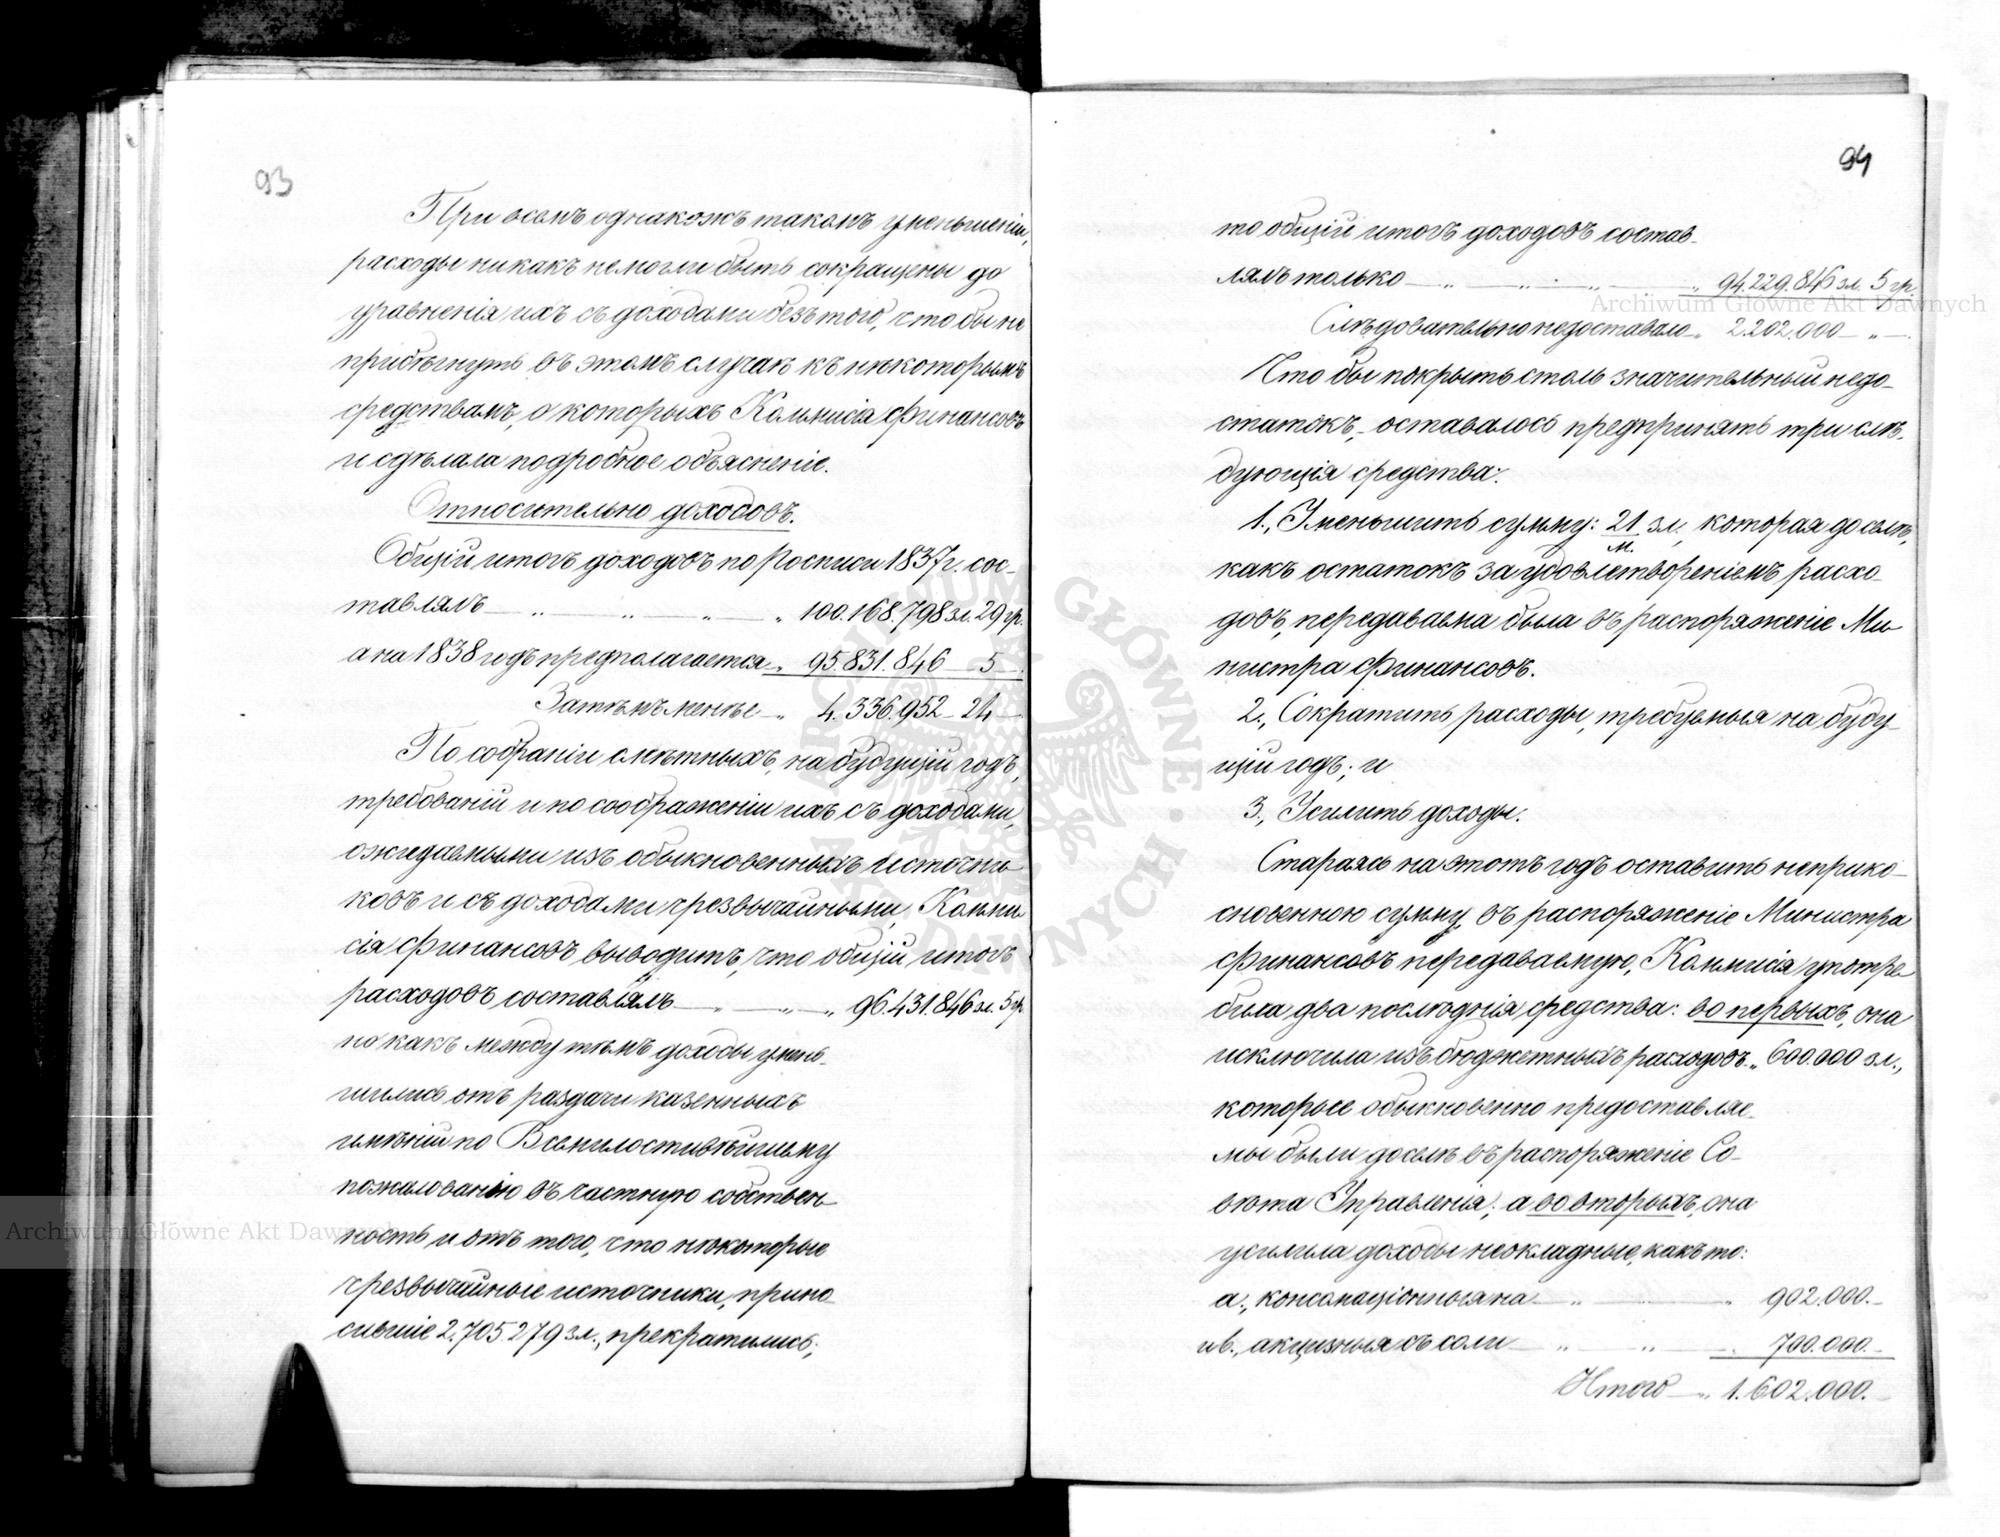 93
При всемъ однакожъ такомъ уменьшеніи,
расходы никакъ не могли быть сокращены до
уравненія ихъ съ доходами безъ того, что бы не
прибѣгнуть въ этомъ случаѣ къ нѣкоторымъ
средствамъ, о которыхъ Коммисія Финансовъ
и сдѣлала подробное объясненіе.
Относительно доходовъ.
Общій итогъ доходовъ по Росписи 1837 г. сос-
тавлялъ — „ — „ — „ — „ 100.168.798 зл. 29 гр.
а на 1838 годъ предполагается „ 95.831.846 — 5 —
Затѣмъ менѣе — „ 4.336.952 — 24 —
По собраніи смѣтныхъ, на будущій годъ,
требованій и по соображеніи ихъ съ доходами,
ожидаемыми изъ обыкновенныхъ источни-
ковъ и съ доходами чрезвычайными, Комми-
сія Финансовъ выводитъ, что общій итогъ
расходовъ составлялъ — „ — „ — „ 96.431.846 зл. 5 гр.
но какъ между тѣмъ доходы умень-
шились отъ раздачи казенныхъ
имѣній по Всемилостивѣйшему
пожалованію въ частную собствен-
ность и отъ того, что нѣкоторые
чрезвычайные источники, прино-
сившіе 2.705.279 зл., прекратились;
94
то общій итогъ доходовъ состав-
лялъ только — „ — „ — „ — „ 94.229.846 зл. 5 гр.
Слѣдовательно недоставало „ 2.202.000 — „ —
Что бы покрыть столь значительный недо-
статокъ, - оставалось предпринять три слѣ-
дующія средства:
1., Уменьшить сумму: 21 м. зл., которая доселѣ,
какъ остатокъ за удовлетвореніемъ расхо-
довъ, передаваема была въ распоряженіе Ми-
нистра Финансовъ.
2., Сократить расходы, требуемыя на буду-
щій годъ; и
3., Усилить доходы.
Стараясь на этотъ годъ оставить неприко-
сновенною сумму, въ распоряженіе Министра
Финансовъ передаваемую, Коммисія употре-
била два послѣднія средства: во первыхъ, она
исключила изъ бюджетныхъ расходовъ „ 600.000 зл.,
которые обыкновенно предоставляе-
мы были доселѣ въ распоряженіе Со-
вѣта Управленія; а во вторыхъ, она
усилила доходы неокладные, какъ то:
а., консомаціонныя на — „ — „ 902.000. —
и в., акцизныя съ соли — „ — „ — „ 700.000. —
Итого — „ 1.602.000. —
Archiwum Główne Akt Dawnych
Archiwum Główne Akt Dawnych
ARCHIWUM GŁÓWNE AKT DAWNYCH